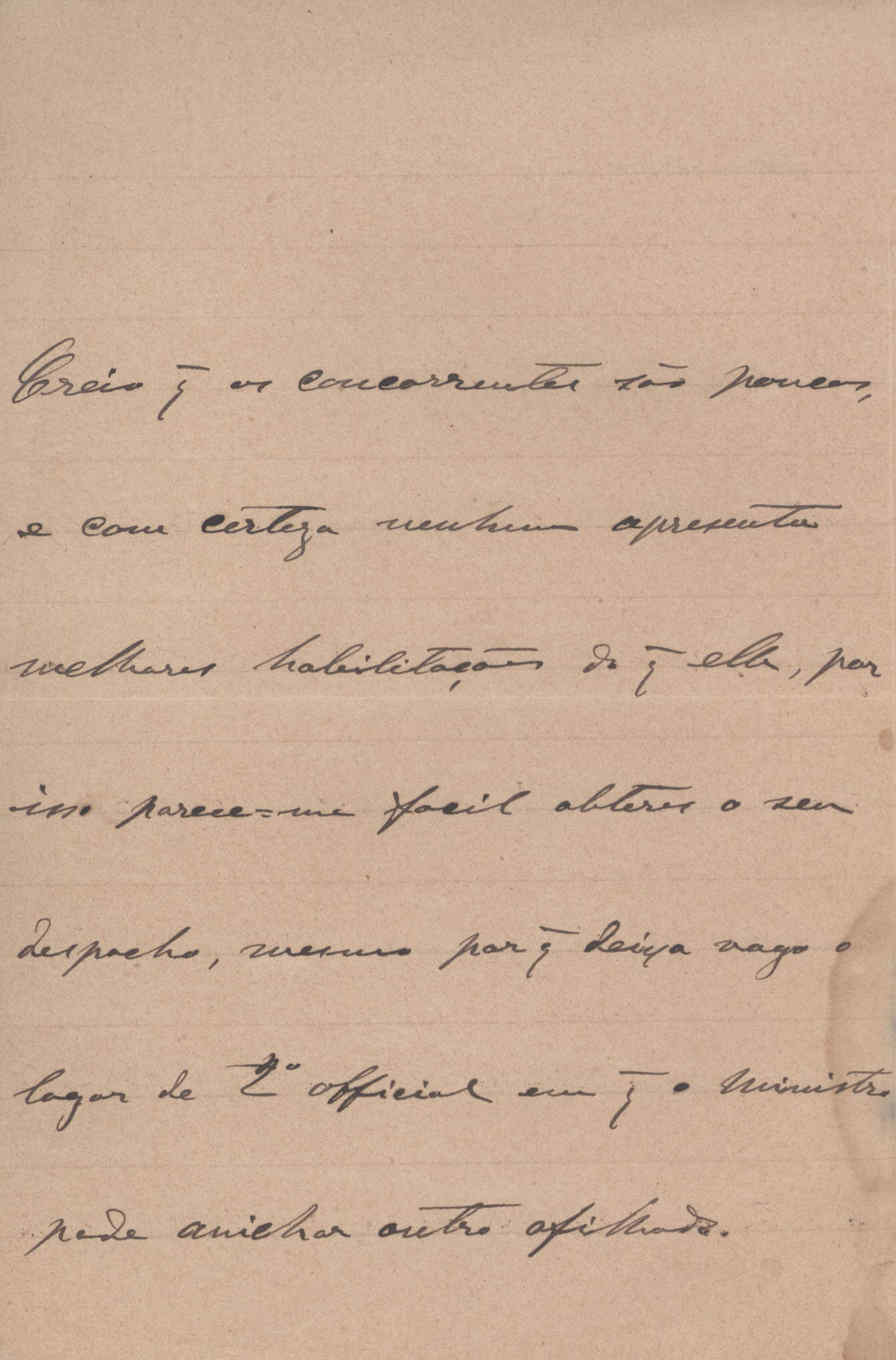 Creio q̄ os concorrentes são poucos,
e com certeza nenhum apresenta
melhores habilitações do q̄ elle, por
isso parece=me facil obteres o seu
despacho, mesmo por q̄ deixa vago o
logar de 2º official em q̄ o Ministro
pode anichar outro afilhado.